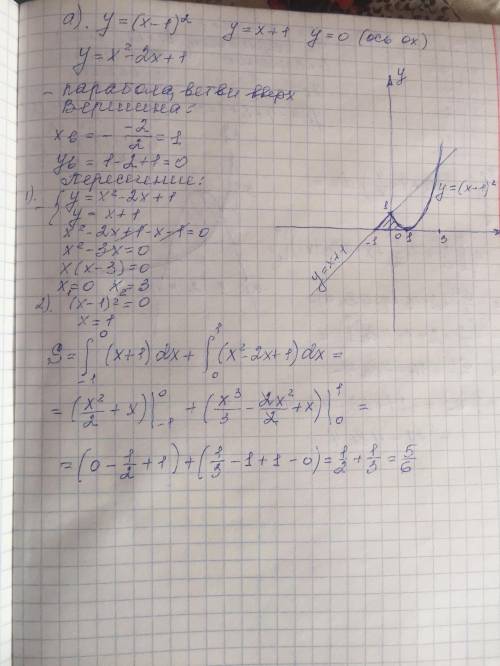 а). y=(x-1)²   y=x+1   y=0 (ось ох)
y=x²-2x+1
- парабола, ветви вверх
Вершина:
xв = - -2/2 = 1
yв = 1-2+1=0
Пересечение:
1). { y=x²-2x+1
{ y=x+1
x²-2x+1-x-1=0
x²-3x=0
x(x-3)=0
x₁=0 x₂=3
2). (x-1)²=0
x=1
S = ∫₋₁⁰ (x+1)dx + ∫₀¹ (x²-2x+1)dx =
= (x²/2 + x)|₋₁⁰ + (x³/3 - 2x²/2 + x)|₀¹ =
= (0 - 1/2 + 1) + (1/3 - 1 + 1 - 0) = 1/2 + 1/3 = 5/6
y
y=(x-1)²
1
-1 0 1 3
y=x+1